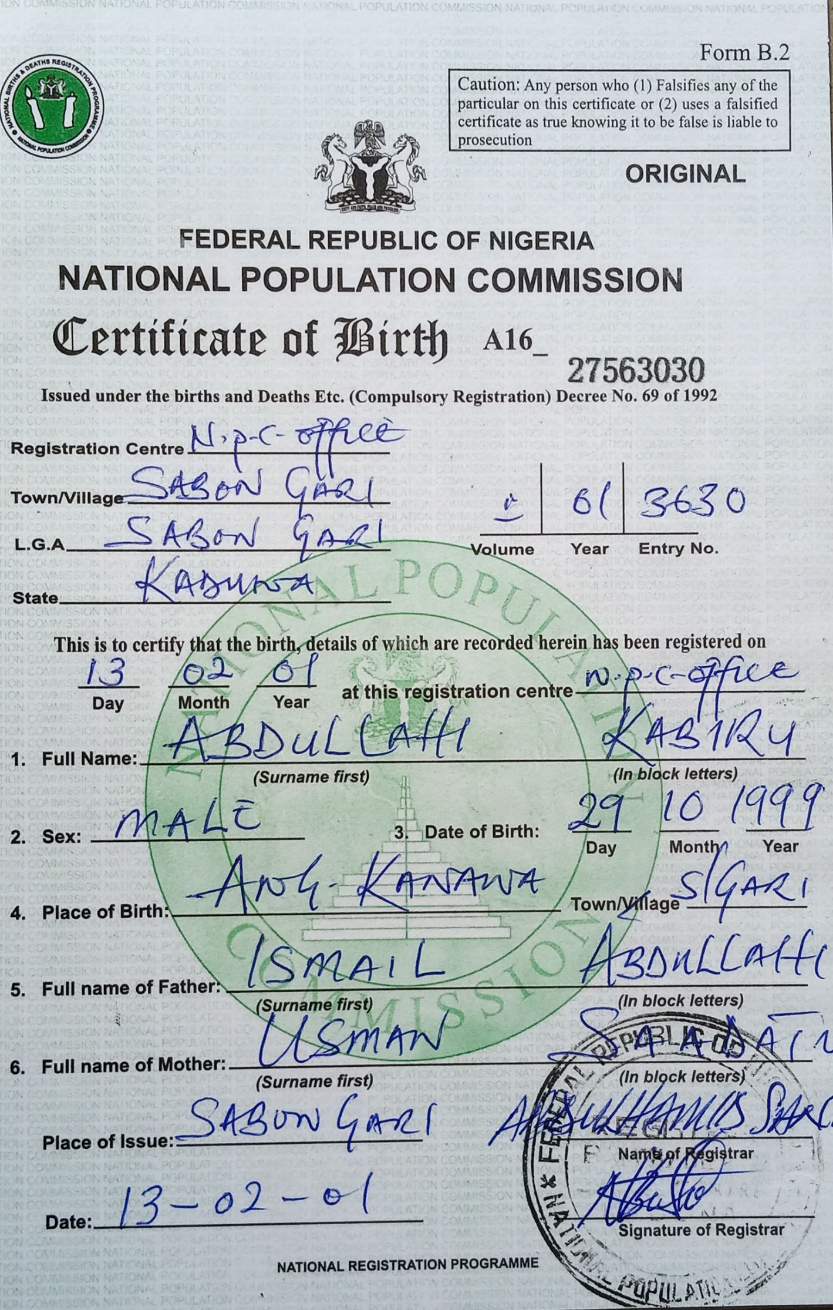 Form B.2
NATIONAL BIRTHS & DEATHS REGISTRATION PROGRAMME
NATIONAL POPULATION COMMISSION
Caution: Any person who (1) Falsifies any of the
particular on this certificate or (2) uses a falsified
certificate as true knowing it to be false is liable to
prosecution
ORIGINAL
FEDERAL REPUBLIC OF NIGERIA
NATIONAL POPULATION COMMISSION
Certificate of Birth A16_ 27563030
Issued under the births and Deaths Etc. (Compulsory Registration) Decree No. 69 of 1992
Registration Centre N.P.C-office
Town/Village SABON GARI
L.G.A SABON GARI
01 3630
Volume Year Entry No.
State KADUNA
This is to certify that the birth, details of which are recorded herein has been registered on
13 02 01 at this registration centre N.P.C-office
Day Month Year
1. Full Name: ABDULLAHI KABIRU
(Surname first) (In block letters)
2. Sex: MALE 3. Date of Birth: 29 10 1999
Day Month Year
4. Place of Birth: ANG. KANAWA Town/Village S/GARI
5. Full name of Father: ISMAIL ABDULLAHI
(Surname first) (In block letters)
6. Full name of Mother: USMAN SAADATU
(Surname first) (In block letters)
Place of Issue: SABON GARI
Name of Registrar
Date: 13-02-01
Signature of Registrar
NATIONAL REGISTRATION PROGRAMME